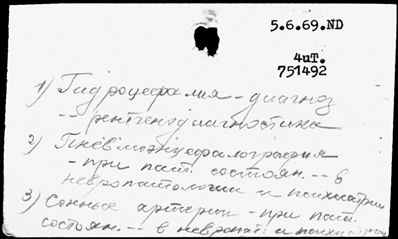 5.6.69.ND
4иТ.
751492
1) Гидроцефалия - диагноз
-- рентгенодиагностика
2) Пневмоэнцефалография
- при пат. состоян. -- в
невропатологии и психиатрии
3) Сонные артерии - при пат.
состоян. -- в невропат. и психиатрии